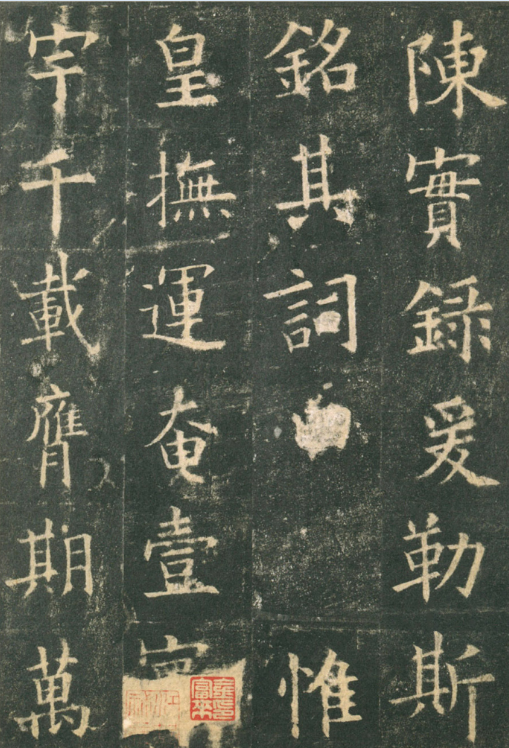 陳實錄爰勒斯
銘其詞惟
皇撫運奄壹
宇千載膺期萬